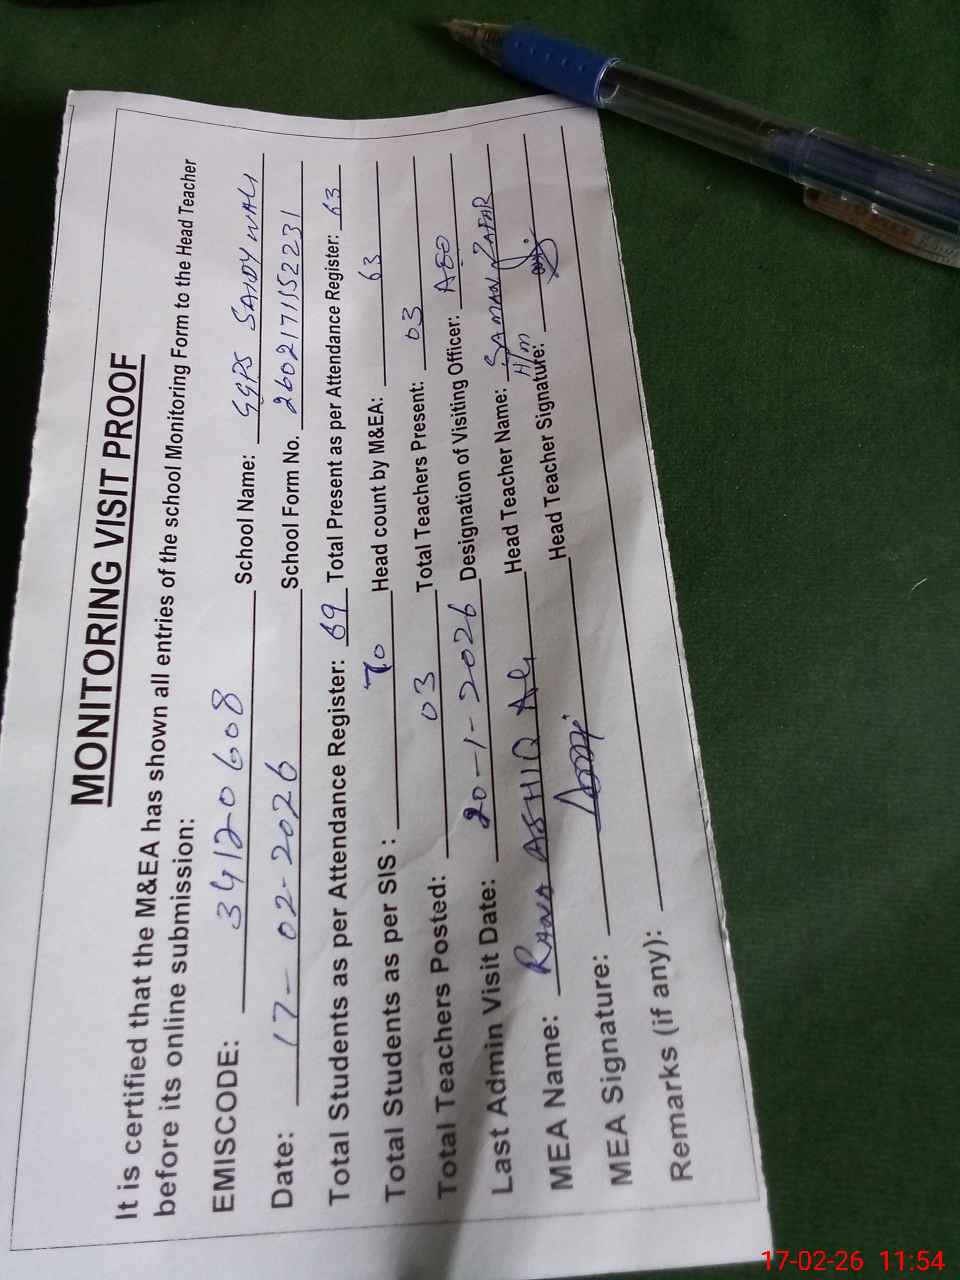 MONITORING VISIT PROOF
It is certified that the M&EA has shown all entries of the school Monitoring Form to the Head Teacher
before its online submission:
EMISCODE: 34120608 School Name: GGPS SAIDY WALI
Date: 17-02-2026 School Form No. 2602171152231
Total Students as per Attendance Register: 69 Total Present as per Attendance Register: 63
Total Students as per SIS: 70 Head count by M&EA: 63
Total Teachers Posted: 03 Total Teachers Present: 03
Last Admin Visit Date: 20-1-2026 Designation of Visiting Officer: AEO
MEA Name: RANA ASHIQ ALI Head Teacher Name: SAMAN ZAFAR
H/M
MEA Signature: Head Teacher Signature:
Remarks (if any):
17-02-26 11:54